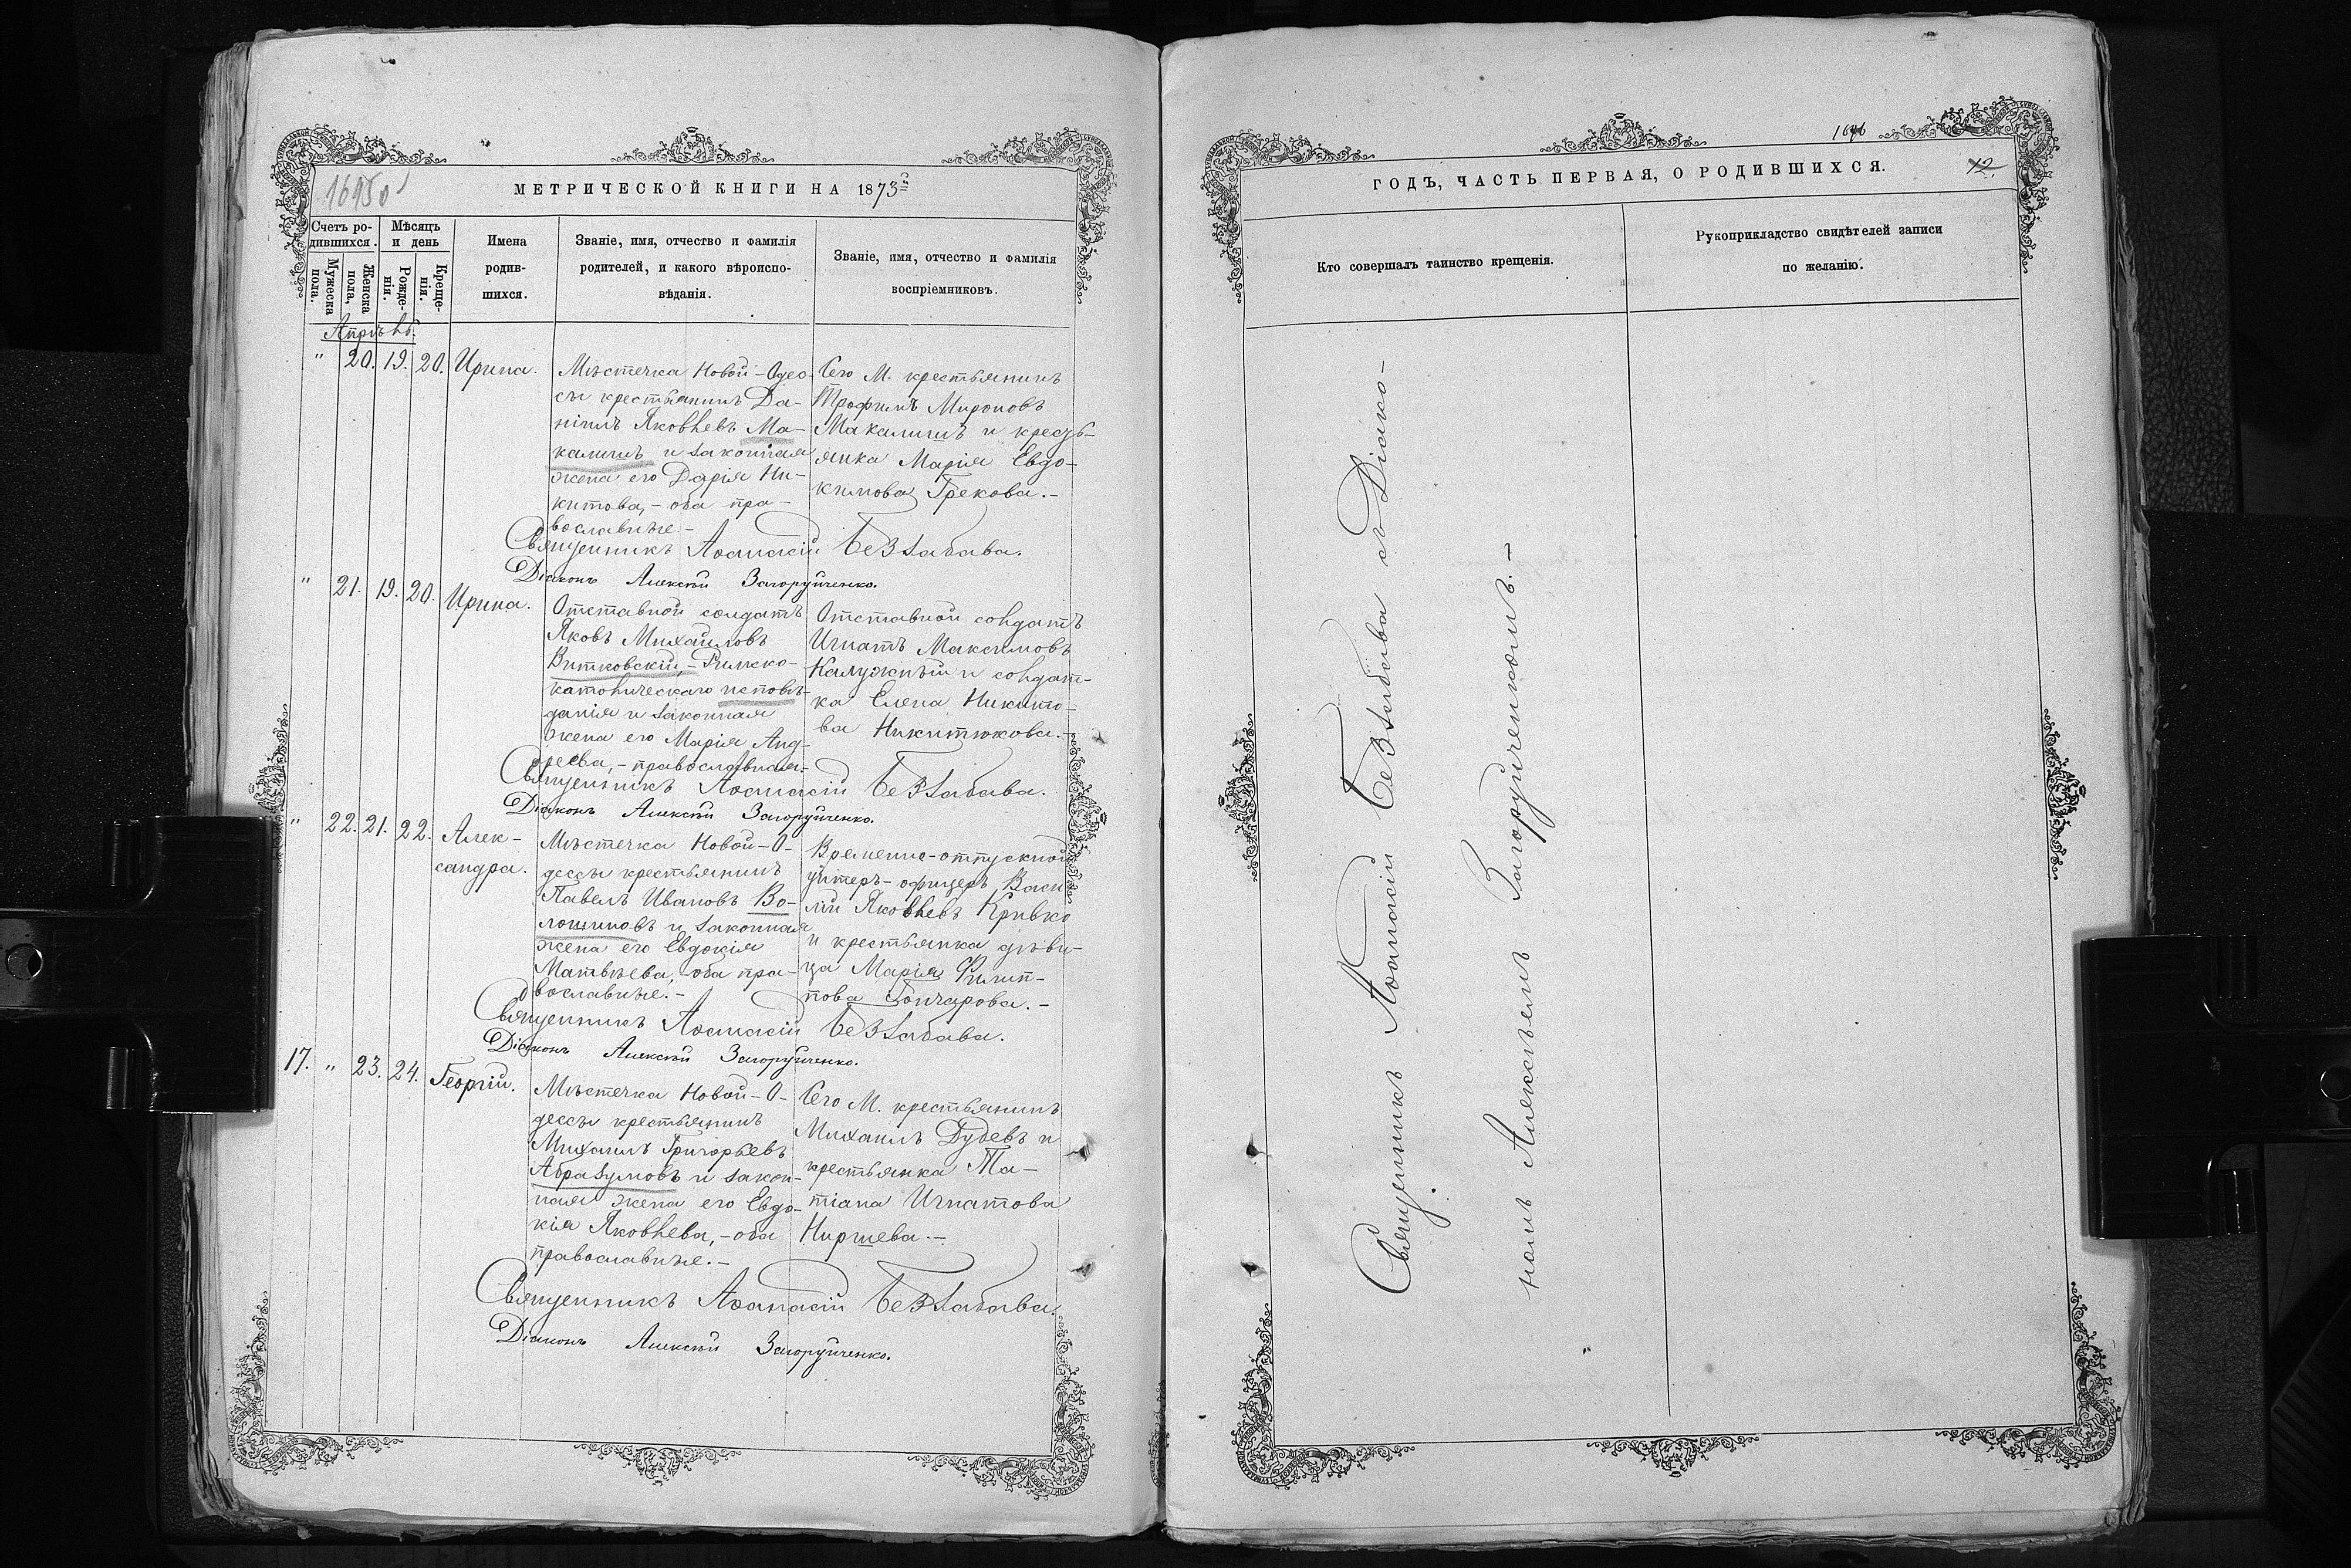 МЕТРИЧЕСКОЙ КНИГИ НА 1873й
Счетъ ро-
дившихся.
Мужеска
пола.
Женска
пола,
Мѣсяцъ
и день
Рожде-
нія.
Креще-
нія.
Имена
родив-
шихся.
Званіе, имя, отчество и фамилія
родителей, и какого вѣроиспо-
вѣданія.
Званіе, имя, отчество и фамилія
воспріемниковъ.
Апрѣль.
" 20. 19. 20. Ирина.
Мѣстечка Новой-Одес-
сы крестьянинъ Да-
ніилъ Яковлевъ Ма-
калишъ и законная
жена его Дарія Ни-
китова, - оба пра-
вославные. -
Сего М. крестьянинъ
Трофимъ Мироновъ
Макалишъ и кресть-
янка Марія Евдо-
кимова Грекова. -
Священникъ Аѳанасій Беззабава.
Діаконъ Алексѣй Загоруйченко.
" 21. 19. 20. Ирина.
Отставной солдатъ
Яковъ Михайловъ
Витковскій, - Римско-
католическаго исповѣ-
данія и законная
жена его Марія Анд-
реева, - православная. -
Отставной солдатъ
Игнатъ Максимовъ
Калужный и солдат-
ка Елена Никито-
ва Никитюкова. -
Священникъ Аѳанасій Беззабава.
Діаконъ Алексѣй Загоруйченко.
" 22. 21. 22. Алек-
сандра.
Мѣстечка Новой-О-
дессы крестьянинъ
Павелъ Ивановъ Во-
лошиновъ и законная
жена его Евдокія
Матвѣева, оба пра-
вославные. -
Временно-отпускной
унтеръ-офицеръ Васи
лій Яковлевъ Кривко
и крестьянка дѣви-
ца Марія Филип-
пова Гончарова. -
Священникъ Аѳанасій Беззабава.
Діаконъ Алексѣй Загоруйченко.
17. " 23. 24. Георгій.
Мѣстечка Новой-О-
дессы крестьянинъ
Михаилъ Григорьевъ
Абразумовъ и закон-
ная жена его Евдо-
кія Яковлева, - оба
православные. -
Сего М. крестьянинъ
Михаилъ Дубевъ и
крестьянка Та-
тіана Игнатова
Ниршева. -
Священникъ Аѳанасій Беззабава.
Діаконъ Алексѣй Загоруйченко.
ГОДЪ, ЧАСТЬ ПЕРВАЯ, О РОДИВШИХСЯ.
12.
Кто совершалъ таинство крещенія.
Рукоприкладство свидѣтелей записи
по желанію.
Священникъ Аѳанасій Беззабава съ Діако-
номъ Алексѣемъ Загоруйченкомъ. -